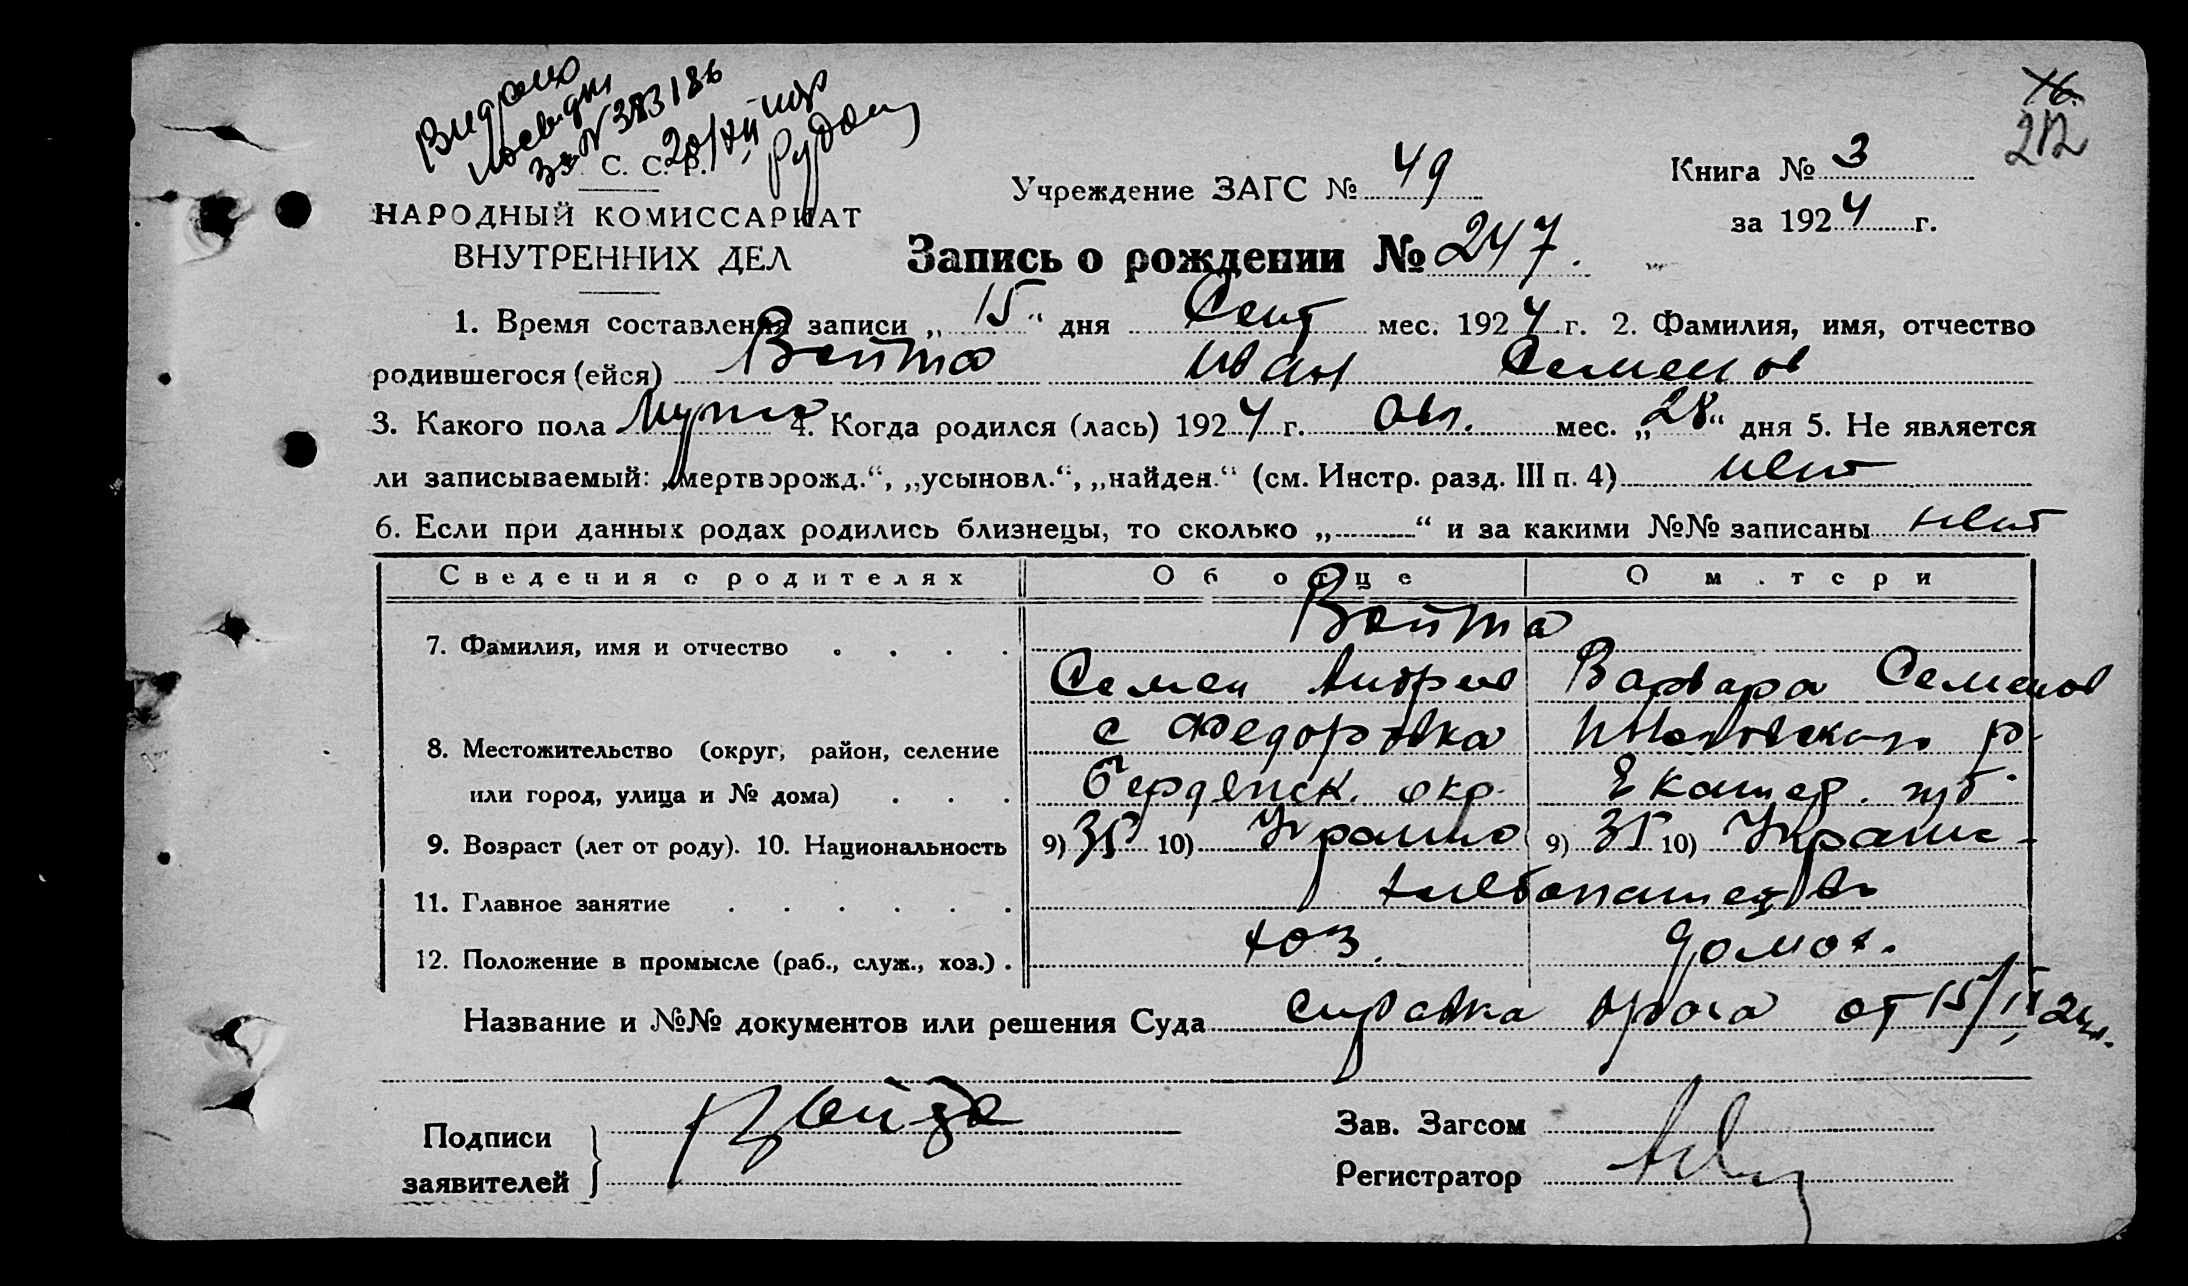 Видано
№ 383186
С. С. Р.
НАРОДНЫЙ КОМИССАРИАТ
ВНУТРЕННИХ ДЕЛ
16
212
Учреждение ЗАГС № 49
Книга № 3
за 1924 г.
Запись о рождении № 247.
1. Время составления записи „15“ дня Сент мес. 1924 г. 2. Фамилия, имя, отчество
родившегося (ейся) Войта Иван Семенов
3. Какого пола Мужс 4. Когда родился (лась) 1924 г. Авг. мес. „28“ дня 5. Не является
ли записываемый: „мертворожд.“, „усыновл.“, „найден.“ (см. Инстр. разд. III п. 4) нет
6. Если при данных родах родились близнецы, то сколько „ “ и за какими №№ записаны нет
Сведения о родителях Об отце О матери
Войта
7. Фамилия, имя и отчество
Семен Андреев Варвара Семенов
с Федоровка р.
8. Местожительство (округ, район, селение
или город, улица и № дома) Бердянск. окр. Екатер. губ.
9. Возраст (лет от роду). 10. Национальность 9) 35 10) Украино 9) 35 10) Украин-
11. Главное занятие хлебопашество
12. Положение в промысле (раб., служ., хоз.) хоз. домох.
Название и №№ документов или решения Суда справка врача от 15/IX 24г.
Подписи
заявителей
Войта
Зав. Загсом
Регистратор